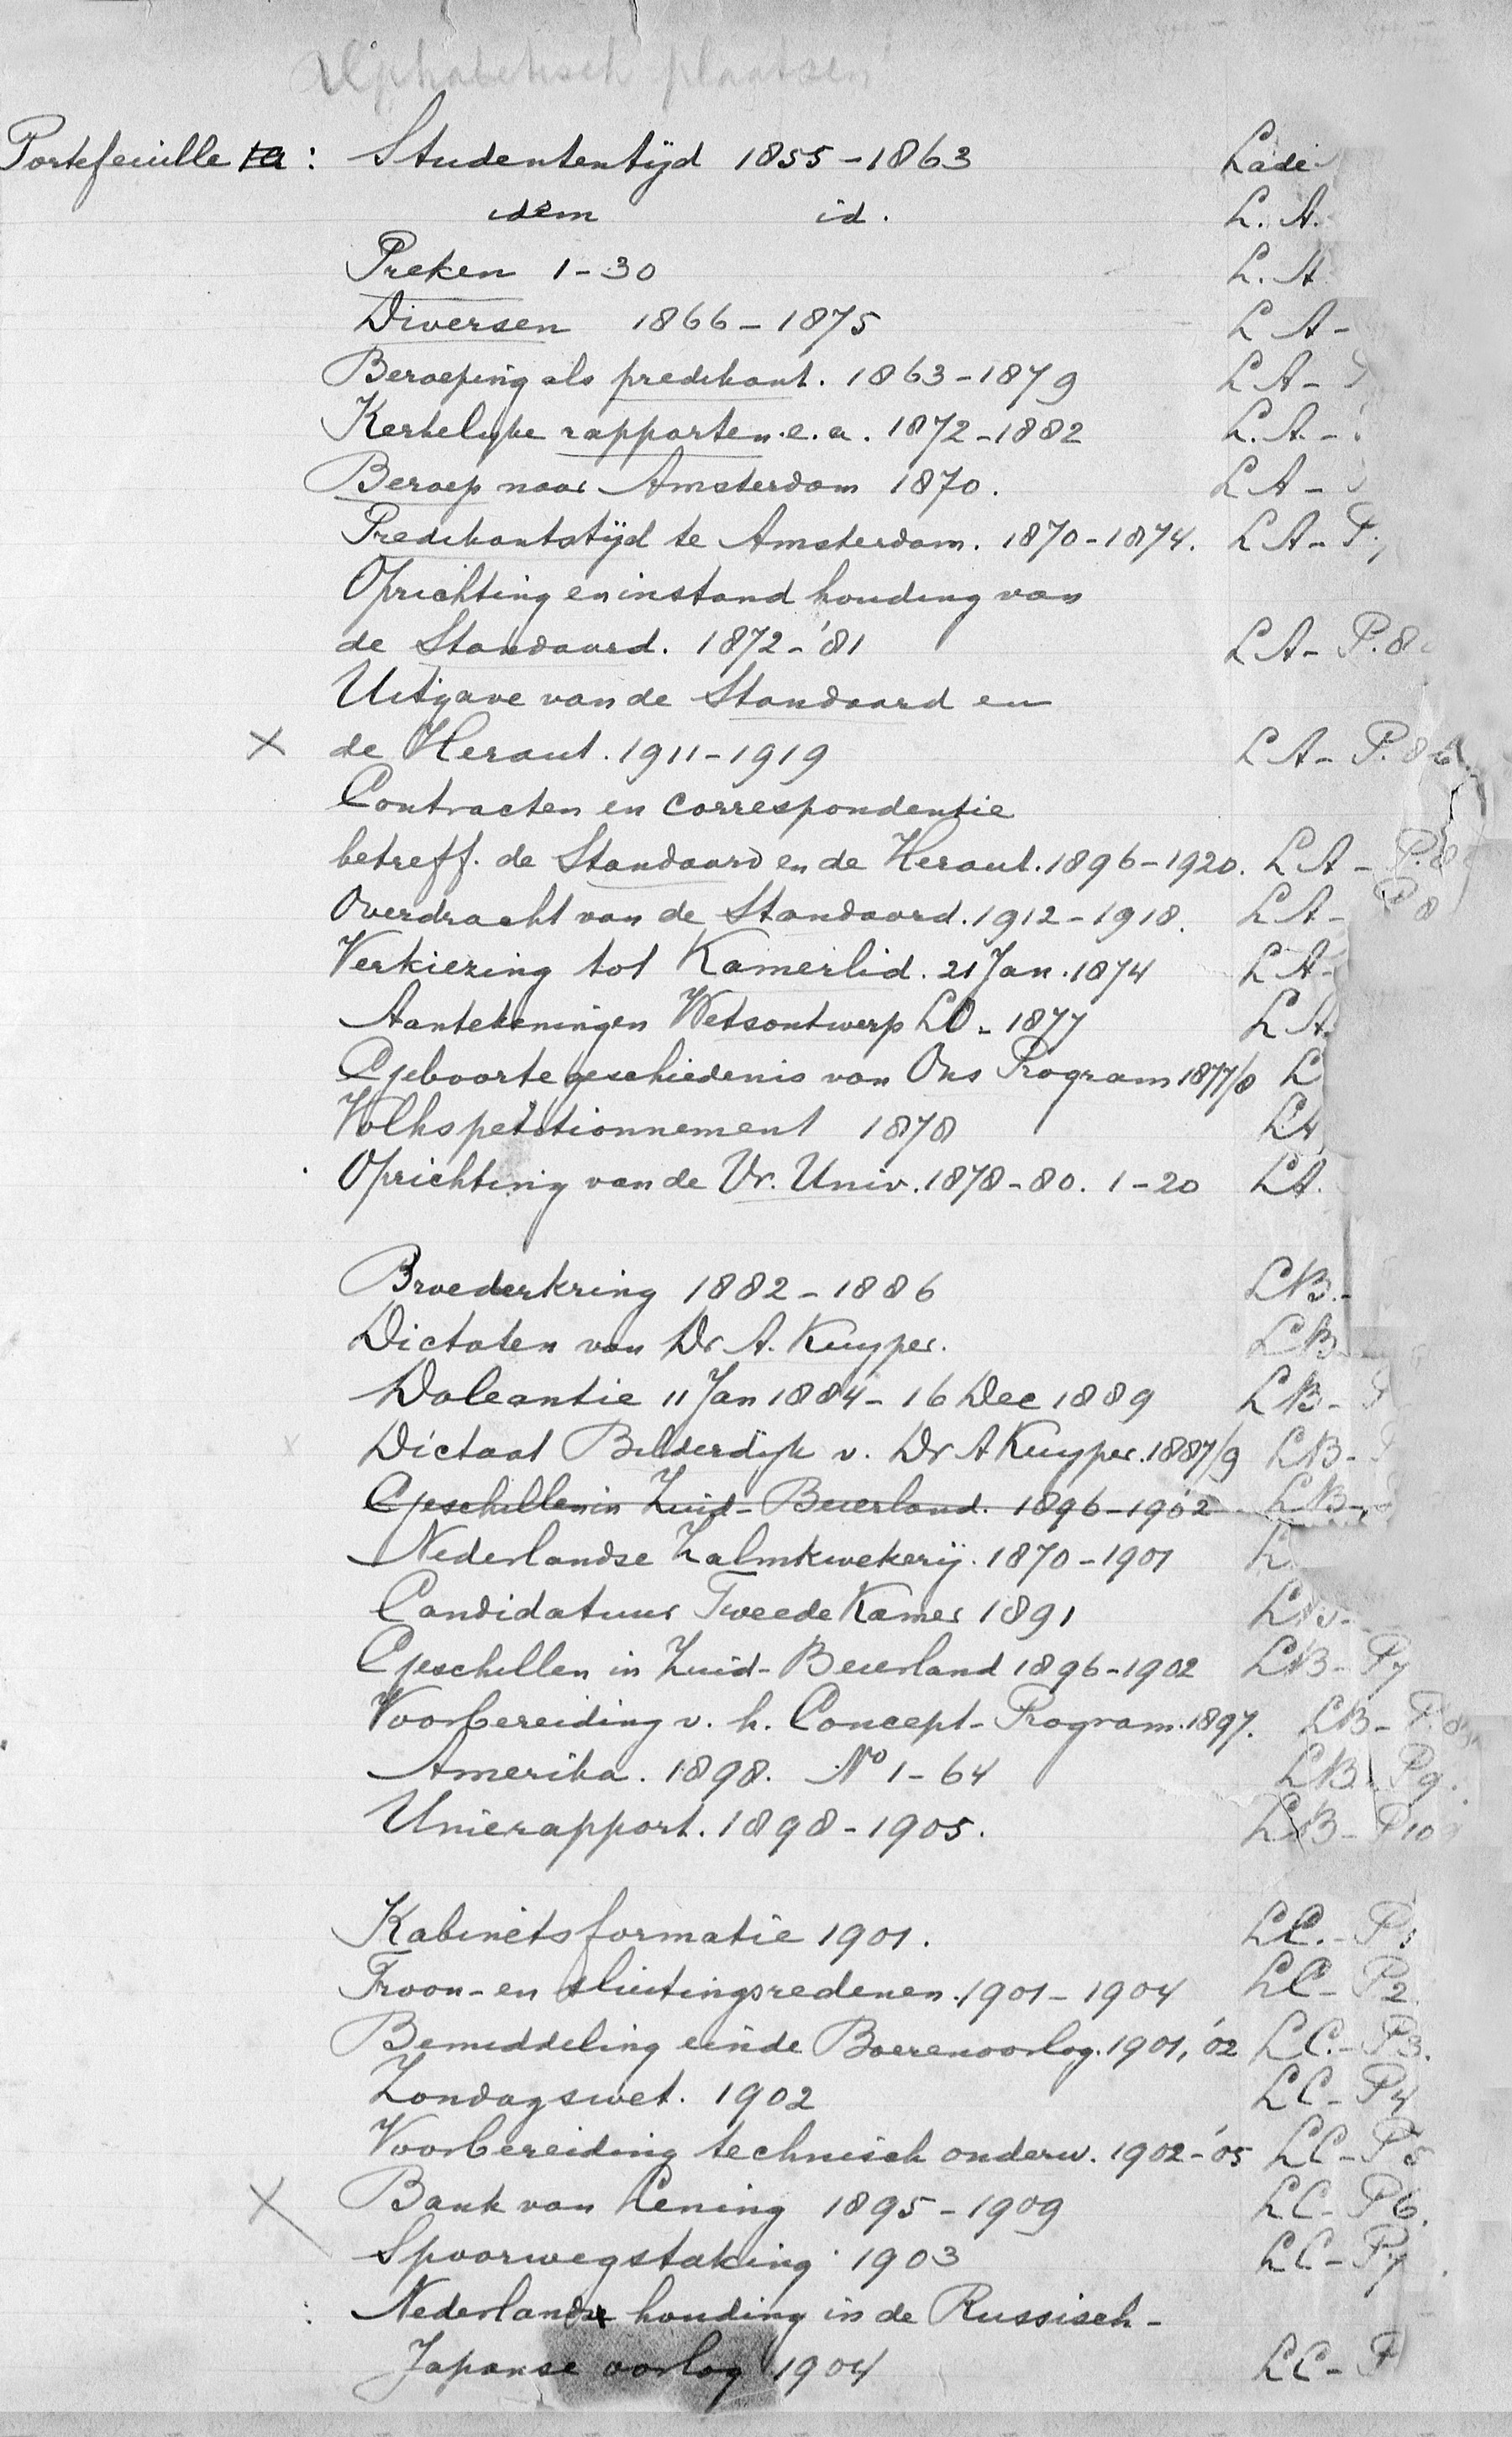 Alphabetisch plaatsen
Portefeuille 1a: Studententijd 1855-1863 Lade
idem id. L. A.
Preken 1-30 L. A
Diversen 1866-1875 L A-
Beroeping als predikant. 1863-1879 L A-
Kerkelijke rapporten e.a. 1872-1882 L.A.-
Beroep naar Amsterdam 1870. L A-
Predikantstijd te Amsterdam. 1870-1874. L A-P.
Oprichting en instandhouding van
de Standaard. 1872-'81 L A-P.8
Uitgave van de Standaard en
X de Heraut. 1911-1919 L A-P.8b
Contracten en correspondentie
betreff. de Standaard en de Heraut. 1896-1920. L A-P.8
Overdracht van de Standaard. 1912-1918. L A- P8
Verkiezing tot Kamerlid. 21 Jan. 1874 L A-
Aantekeningen Wetsontwerp LO-1877 L A.
Geboortegeschiedenis van Ons Program 1877/8 L
Volkspetitionnement 1878 LA
Oprichting van de Vr. Univ. 1878-80. 1-20 LA.
Broederkring 1882-1886 LB.-
Dictaten van Dr A. Kuyper. LB
Doleantie 11 Jan 1884-16 Dec 1889 LB-
Dictaat Bilderdijk v. Dr A Kuyper. 1887/9 LB-
Geschillen in Zuid-Beierland. 1896-1902 LB-
Nederlandse Zalmkwekerij. 1870-1901 L
Candidatuur Tweede Kamer 1891 LB-
Geschillen in Zuid-Beierland 1896-1902 LB-P7
Voorbereiding v. h. Concept-Program. 1897. LB-P.8
Amerika. 1898. No 1-64 LB-P9.
Unierapport. 1898-1905. LB-P10
Kabinetsformatie 1901. LC.-P1
Troon- en sluitingsredenen. 1901-1904 LC-P2
Bemiddeling einde Boerenoorlog. 1901,'02 LC.-P3.
Zondagswet. 1902 LC-P4
Voorbereiding technisch onderw. 1902-'05 LC-P5
X Bank van Lening 1895-1909 LC-P6.
Spoorwegstaking 1903 LC-P7
Nederlands houding in de Russisch-
Japanse oorlog 1904 LC-P